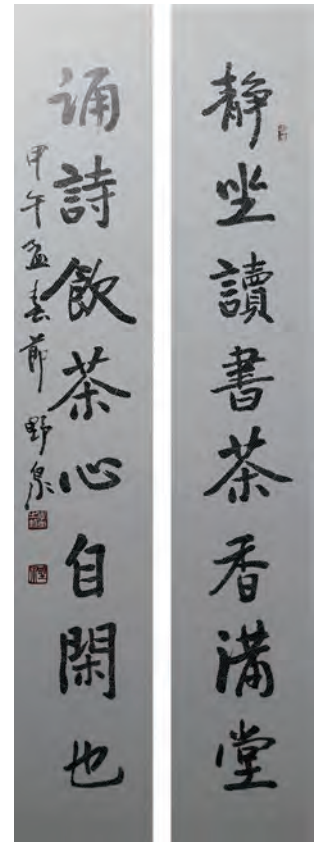 静坐讀書茶香满堂
诵詩飲茶心自閑也
甲午孟春節 野泉